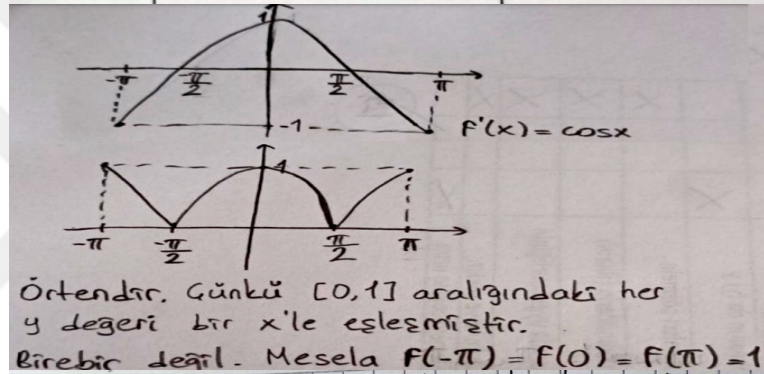 1
-π -π/2 π/2 π
-1
F'(x) = cosx
1
-π -π/2 π/2 π
Örtendir. Çünkü [0,1] aralığındaki her
y değeri bir x'le eşleşmiştir.
Birebir değil. Mesela F(-π) = F(0) = F(π) = 1